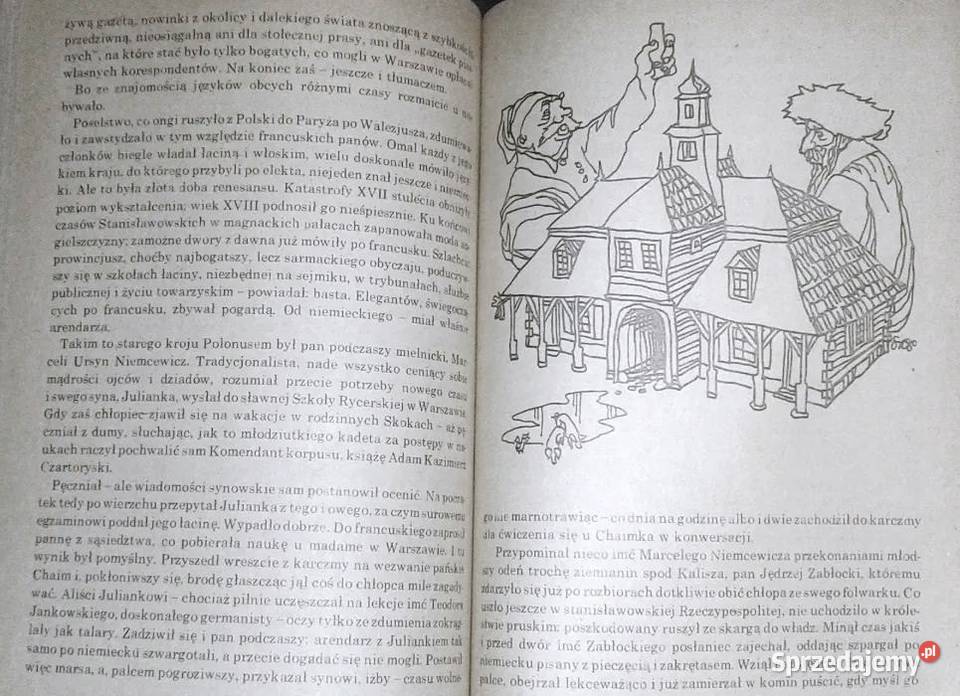 żywą gazetą, nowinki z okolicy i dalekiego świata znoszącą z
przedziwną, nieosiągalną ani dla stołecznej prasy, ani dla „gazetek
nych”, na które stać było tylko bogatych, co mogli w Warszawie
własnych korespondentów. Na koniec zaś – jeszcze i tłumaczem.
Bo ze znajomością języków obcych różnymi czasy rozmaicie u
bywało.
Poselstwo, co ongi ruszyło z Polski do Paryża po Walezjusza,
ło i zawstydzało w tym względzie francuskich panów. Omal każdy z
członków biegle władał łaciną i włoskim, wielu doskonale mówiło
kiem kraju, do którego przybyli po elekta, niejeden znał jeszcze i
ki. Ale to była złota doba renesansu. Katastrofy XVII stulecia
poziom wykształcenia; wiek XVIII podnosił go nieśpiesznie. Ku
czasów Stanisławowskich w magnackich pałacach zapanowała moda
gielszczyzny; zamożne dwory z dawna już mówiły po francusku.
prowincjusz, choćby najbogatszy, lecz sarmackiego obyczaju,
szy się w szkołach łaciny, niezbędnej na sejmiku, w trybunałach, służbie
publicznej i życiu towarzyskim – powiadał: basta. Elegantów,
cych po francusku, zbywał pogardą. Od niemieckiego – miał
arendarza.
Takim to starego kroju Polonusem był pan podczaszy mielnicki, Mar-
celi Ursyn Niemcewicz. Tradycjonalista, nade wszystko ceniący sobie
mądrości ojców i dziadów, rozumiał przecie potrzeby nowego czasu
i swego syna, Julianka, wysłał do sławnej Szkoły Rycerskiej w Warszawie.
Gdy zaś chłopiec zjawił się na wakacje w rodzinnych Skokach – aż pę-
czniał z dumy, słuchając, jak to młodziutkiego kadeta za postępy w na-
ukach raczył pochwalić sam Komendant korpusu, książę Adam Kazimierz
Czartoryski.
Pęczniał – ale wiadomości synowskie sam postanowił ocenić. Na począ-
tek tedy po wierzchu przepytał Julianka z tego i owego, za czym surowemu
egzaminowi poddał jego łacinę. Wypadło dobrze. Do francuskiego zaprosił
pannę z sąsiedztwa, co pobierała naukę u madame w Warszawie. I tu
wynik był pomyślny. Przyszedł wreszcie z karczmy na wezwanie pańskie
Chaim i, pokłoniwszy się, brodę głaszcząc jął coś do chłopca mile zagady-
wać. Aliści Juliankowi – chociaż pilnie uczęszczał na lekcje imć Teodora
Jankowskiego, doskonałego germanisty – oczy tylko ze zdumienia zokrąg-
lały jak talary. Zadziwił się i pan podczaszy; arendarz z Juliankiem tak
samo po niemiecku szwargotali, a przecie dogadać się nie mogli. Postawił
więc marsa, a, palcem pogroziwszy, przykazał synowi, iżby – czasu wolne
go nie marnotrawiąc – co dnia na godzinę albo i dwie zachodził do karczmy
dla ćwiczenia się u Chaimka w konwersacji.
Przypominał nieco imć Marcelego Niemcewicza przekonaniami młod-
szy odeń trochę ziemianin spod Kalisza, pan Jędrzej Zabłocki, któremu
zdarzyło się już po rozbiorach dotkliwie obić chłopa ze swego folwarku. Co
uszło jeszcze w stanisławowskiej Rzeczypospolitej, nie uchodziło w króle-
stwie pruskim: poszkodowany ruszył ze skargą do władz. Minął czas jakiś
i przed dwór imć Zabłockiego posłaniec zajechał, oddając szwargot po
niemiecku pisany z pieczęcią i zakrętasem.
palce, obejrzał lekceważąco i już zamierzał w komin puścić, gdy myśl go
Sprzedajemy.pl